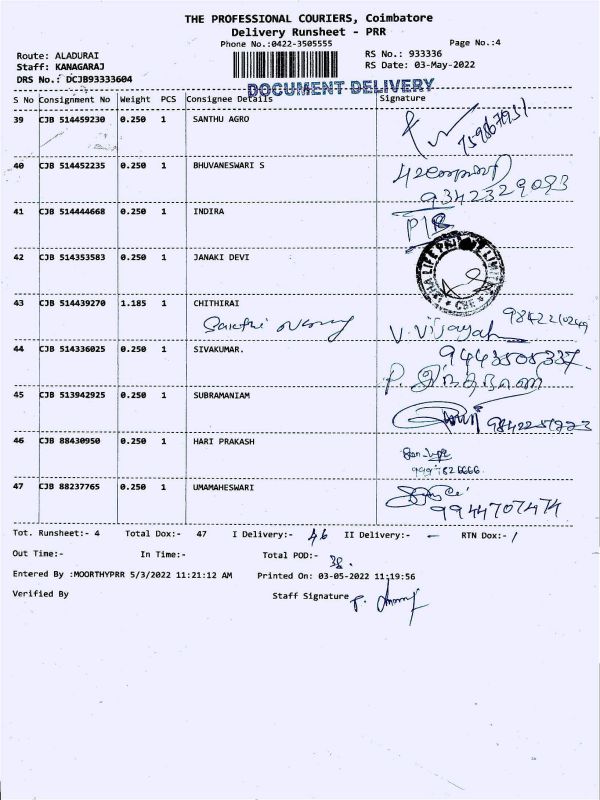 THE PROFESSIONAL COURIERS, Coimbatore
Delivery Runsheet - PRR
Phone No.:0422-3505555
Page No.:4
Route: ALADURAI
RS No.: 933336
Staff: KANAGARAJ
RS Date: 03-May-2022
DRS No.: DCJB93333604
DOCUMENT DELIVERY
S No Consignment No Weight PCS Consignee Details Signature
39 CJB 514459230 0.250 1 SANTHU AGRO
40 CJB 514452235 0.250 1 BHUVANESWARI S
9342329093
41 CJB 514444668 0.250 1 INDIRA
42 CJB 514353583 0.250 1 JANAKI DEVI
43 CJB 514439270 1.185 1 CHITHIRAI
V. Vijayah
44 CJB 514336025 0.250 1 SIVAKUMAR.
9443505337.
45 CJB 513942925 0.250 1 SUBRAMANIAM
46 CJB 88430950 0.250 1 HARI PRAKASH
47 CJB 88237765 0.250 1 UMAMAHESWARI
9944707474
Tot. Runsheet:- 4 Total Dox:- 47 I Delivery:- 46 II Delivery:- - RTN Dox:- 1
Out Time:- In Time:- Total POD:- 38.
Entered By :MOORTHYPRR 5/3/2022 11:21:12 AM Printed On: 03-05-2022 11:19:56
Verified By Staff Signature